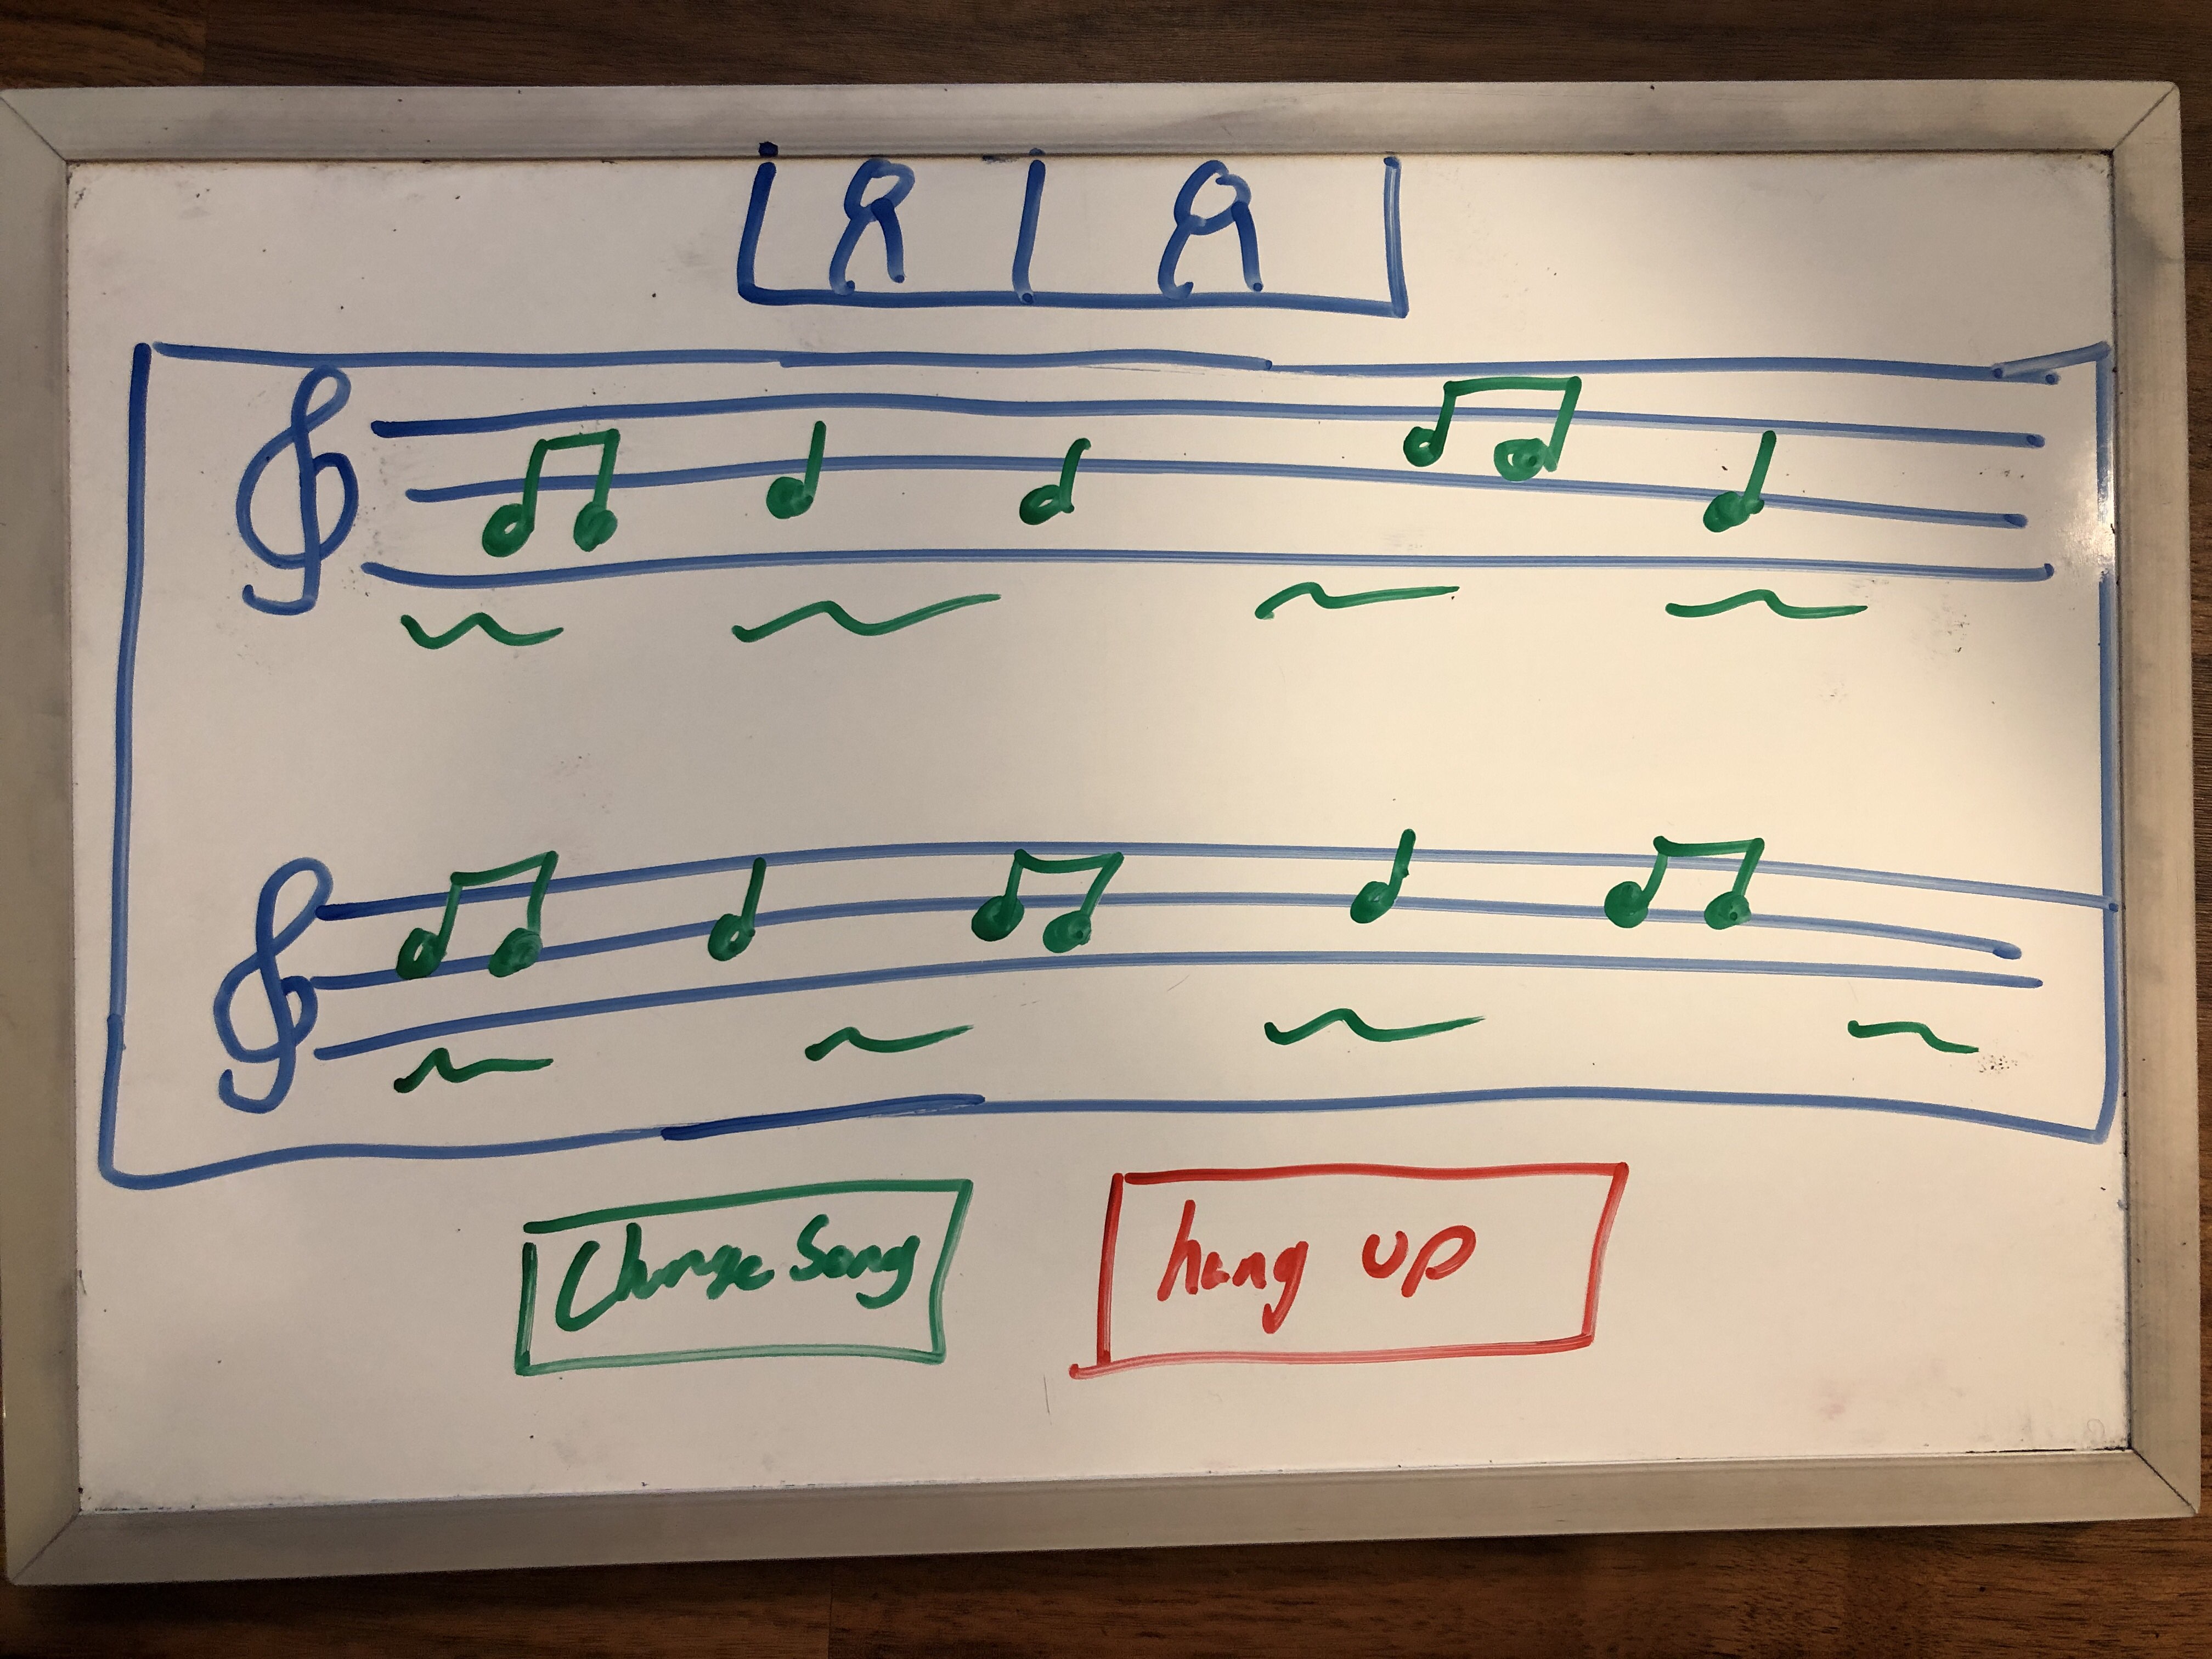 Change Song
hang up